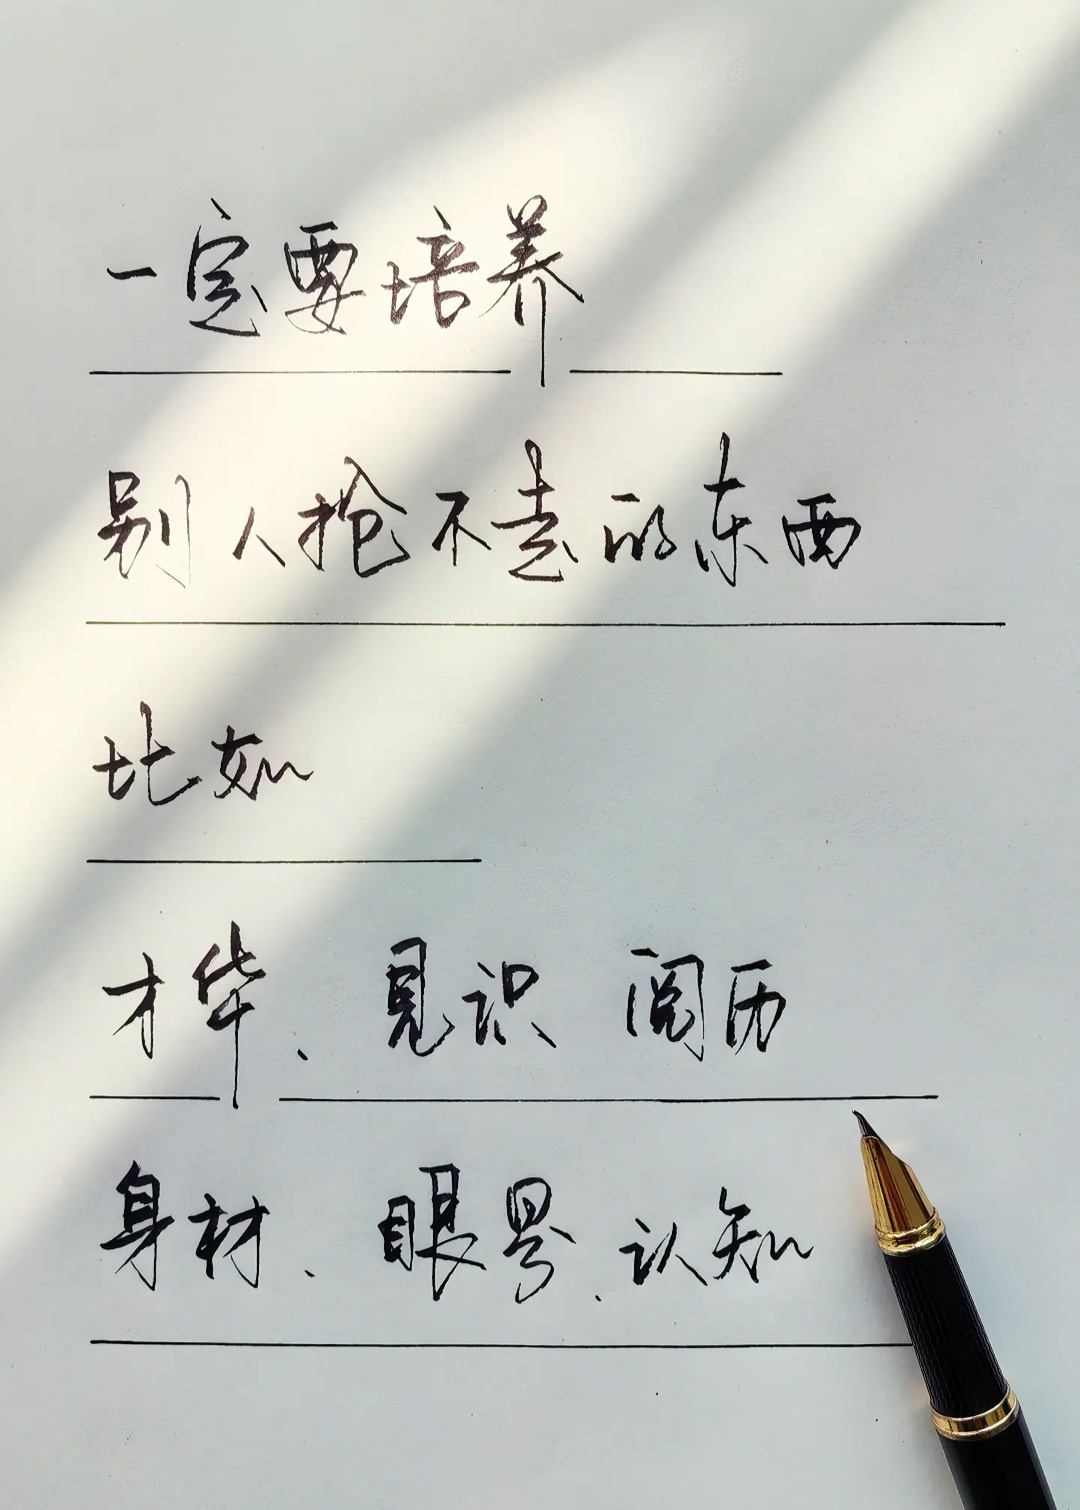 一定要培养
别人抢不走的东西
比如
才华、见识 阅历
身材、眼界、认知